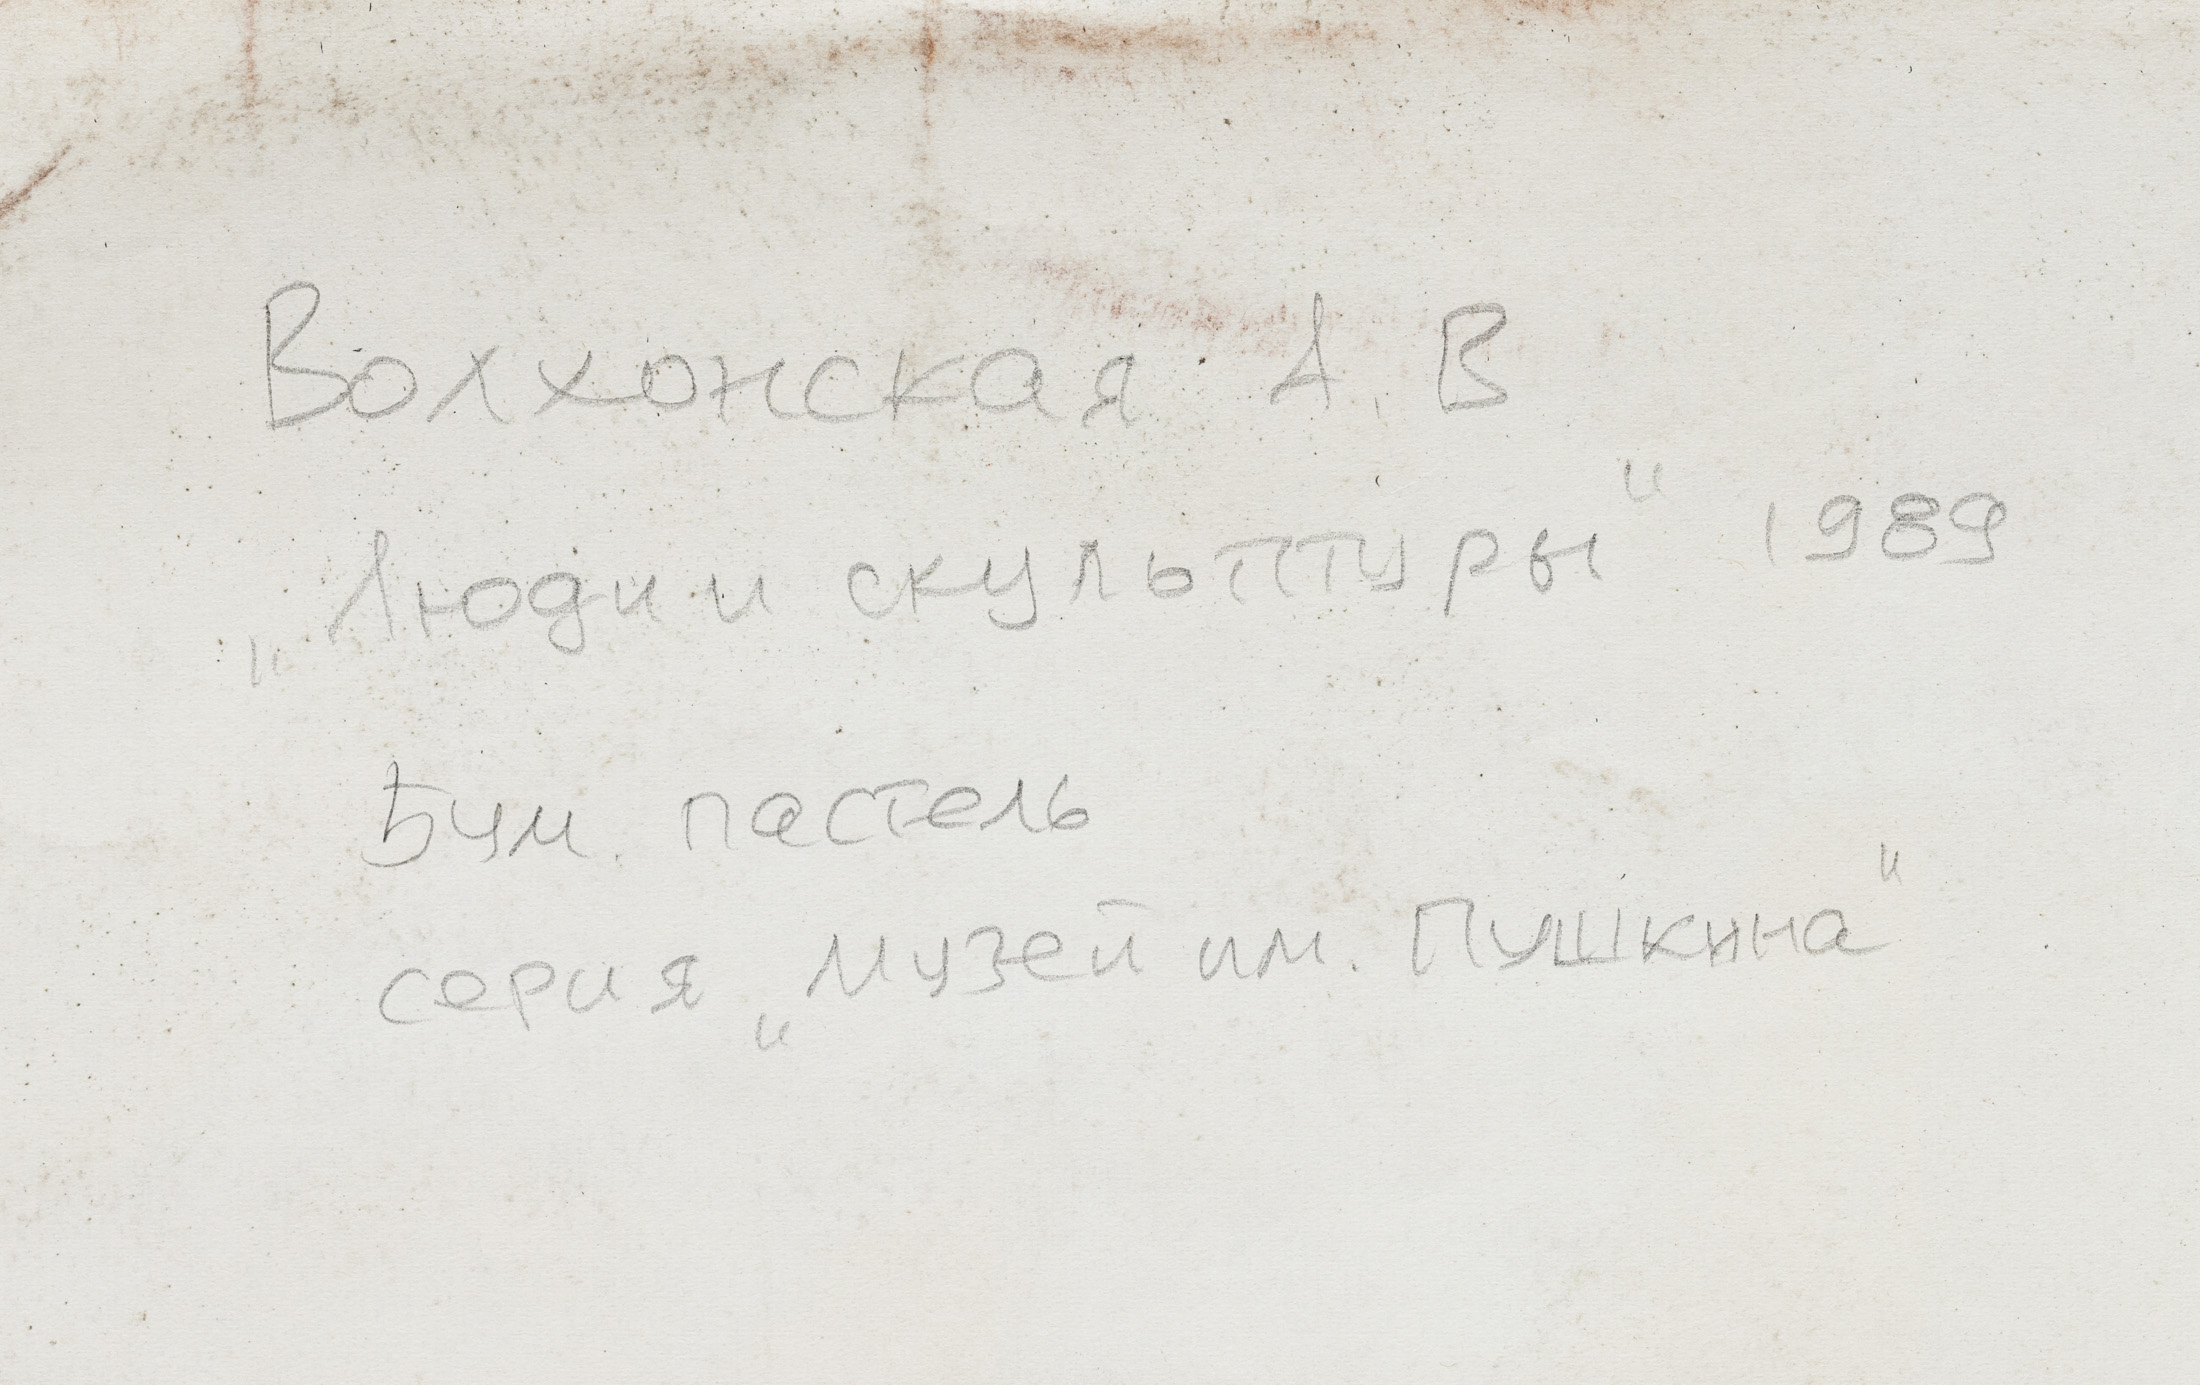 Волхонская А. В
„Люди и скульптуры" 1989
Бум. пастель
серия „Музей им. Пушкина"